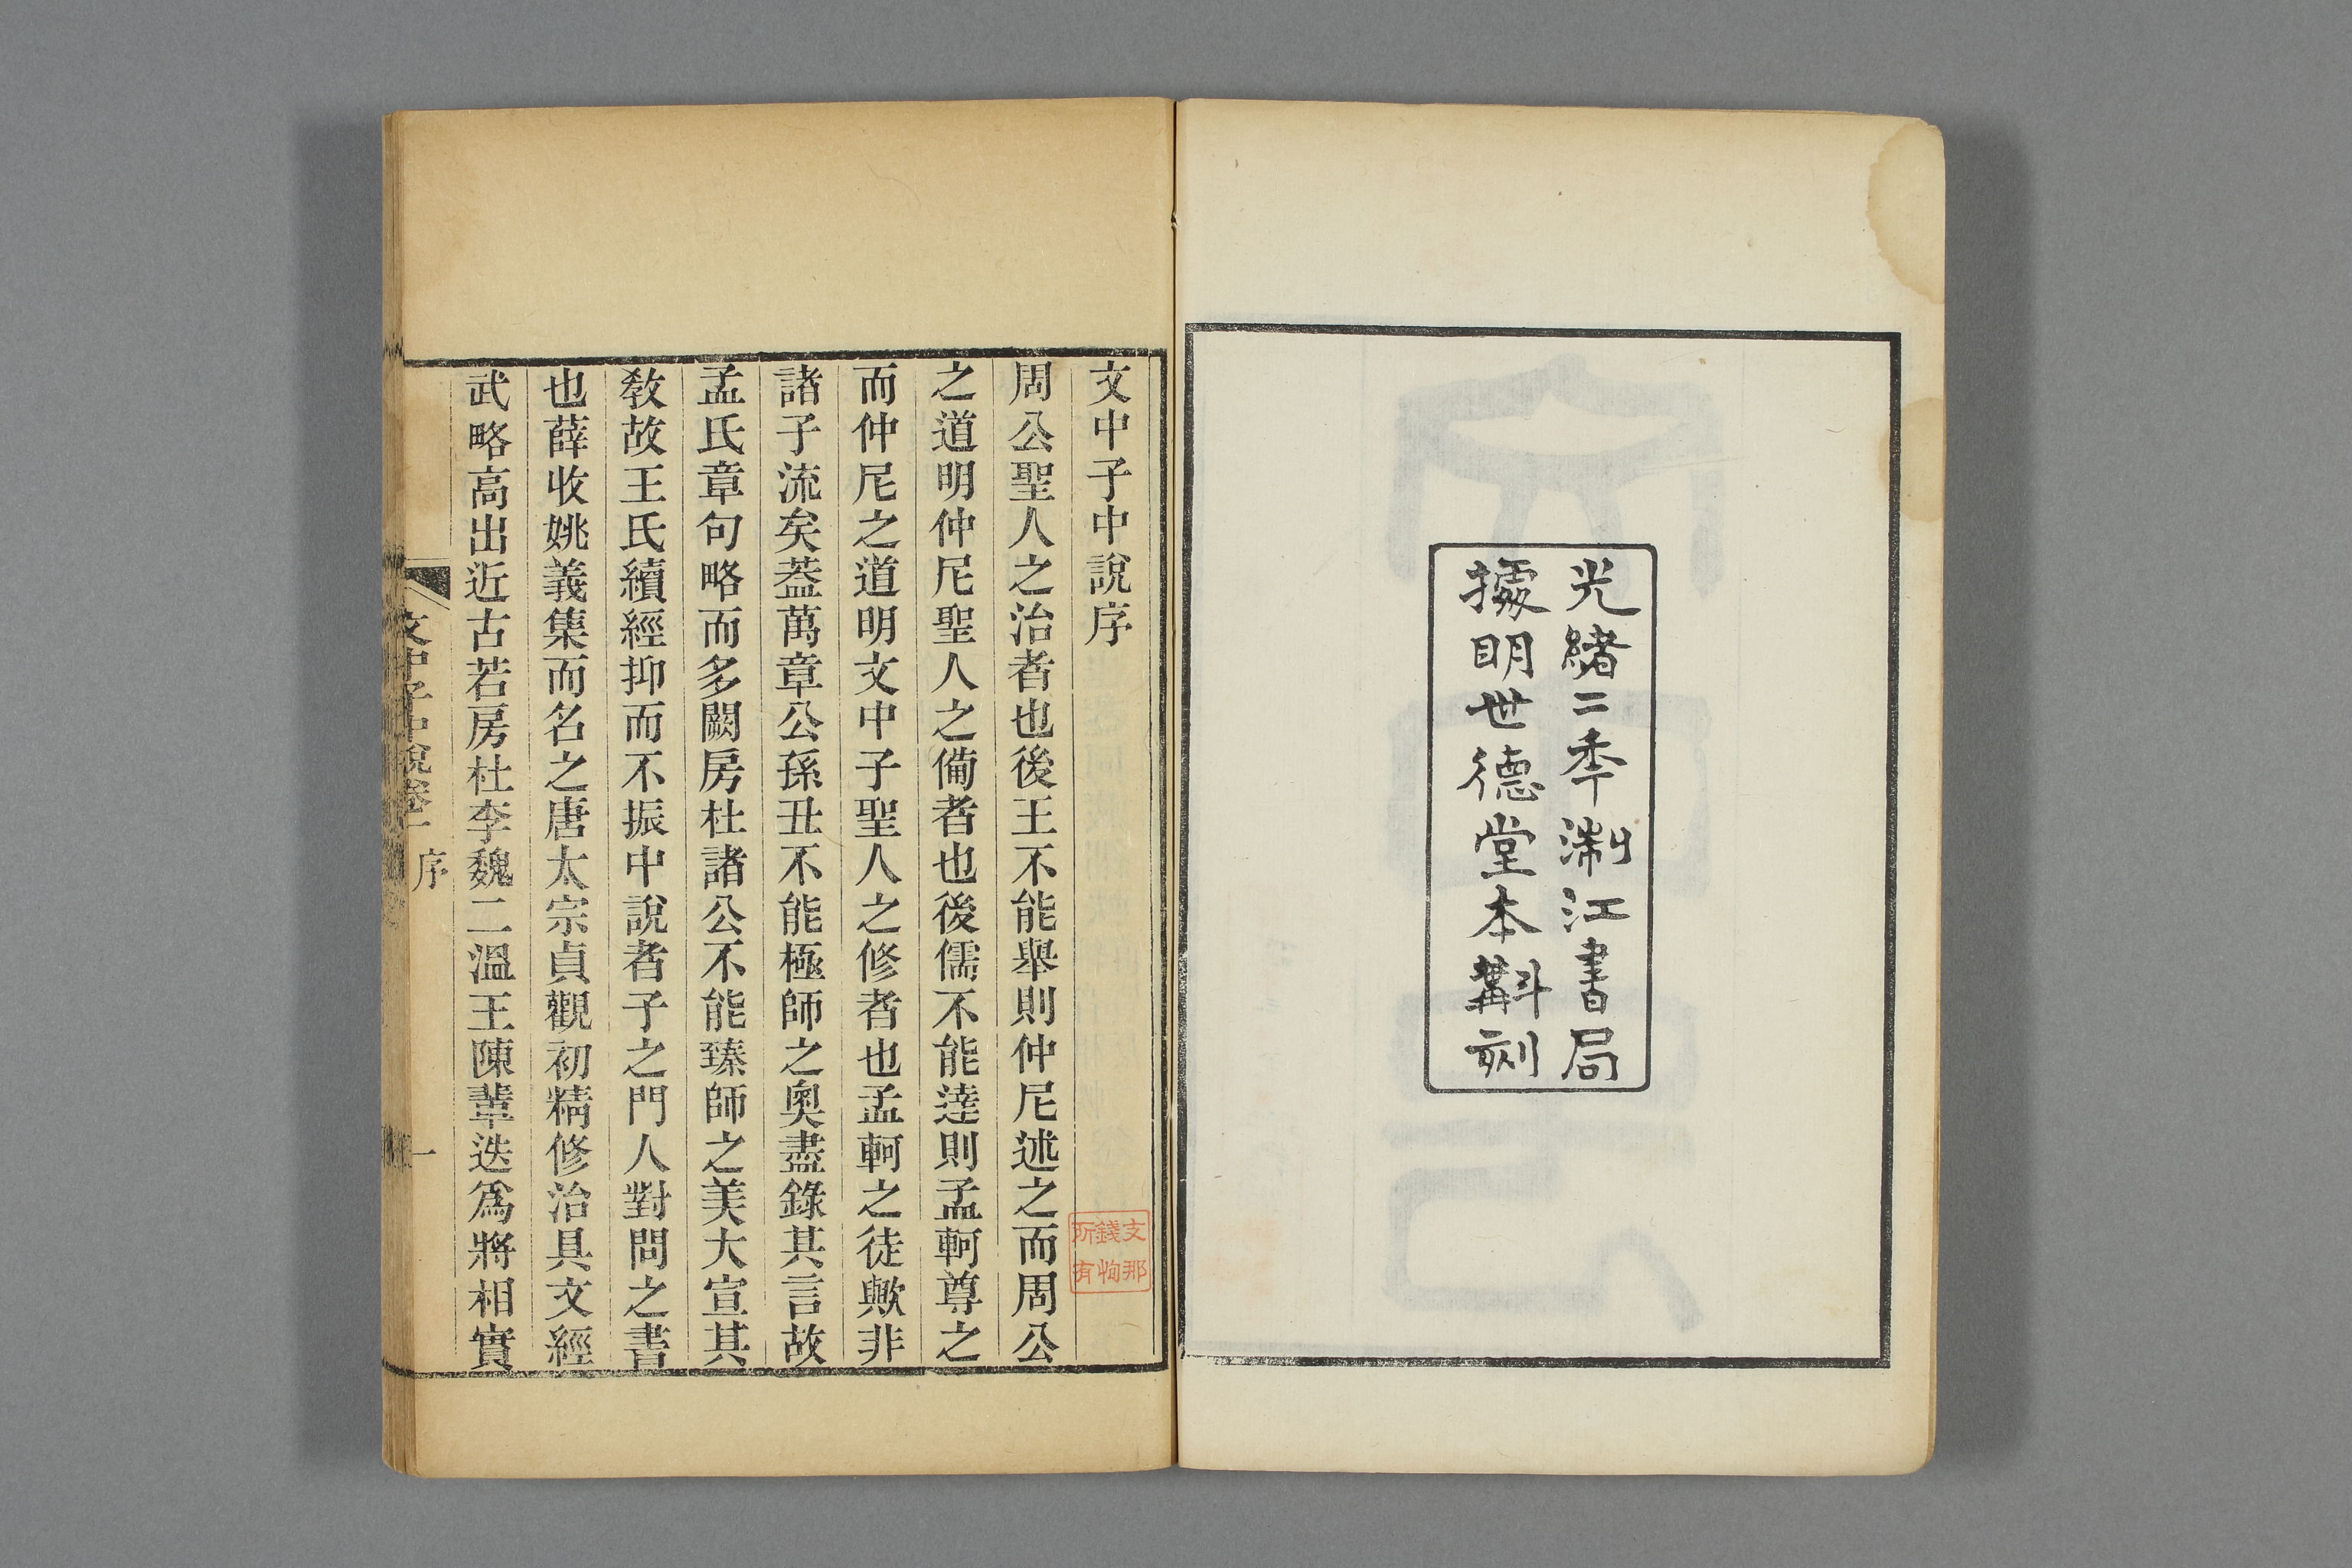 光緒二秊淛江書局
據明世德堂本斠刻
文中子中說序
周公聖人之治者也後王不能舉則仲尼述之而周公
之道明仲尼聖人之備者也後儒不能達則孟軻尊之
而仲尼之道明文中子聖人之修者也孟軻之徒歟非
諸子流矣葢萬章公孫丑不能極師之奧盡錄其言故
孟氏章句略而多闕房杜諸公不能臻師之美大宣其
敎故王氏續經抑而不振中說者子之門人對問之書
也薛收姚義集而名之唐太宗貞觀初精修治具文經
武略高出近古若房杜李魏二溫王陳輩迭爲將相實
文中子中說卷一 序
一
支那
錢恂
所有